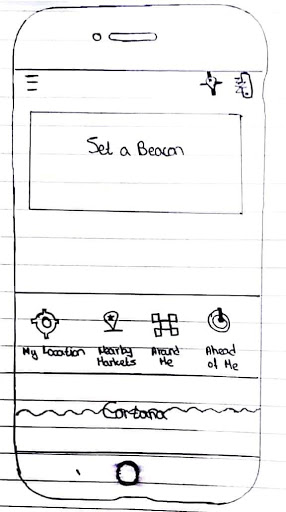 Set a Beacon
My Location
Nearby
Markers
Around
Me
Ahead
of Me
Cortana